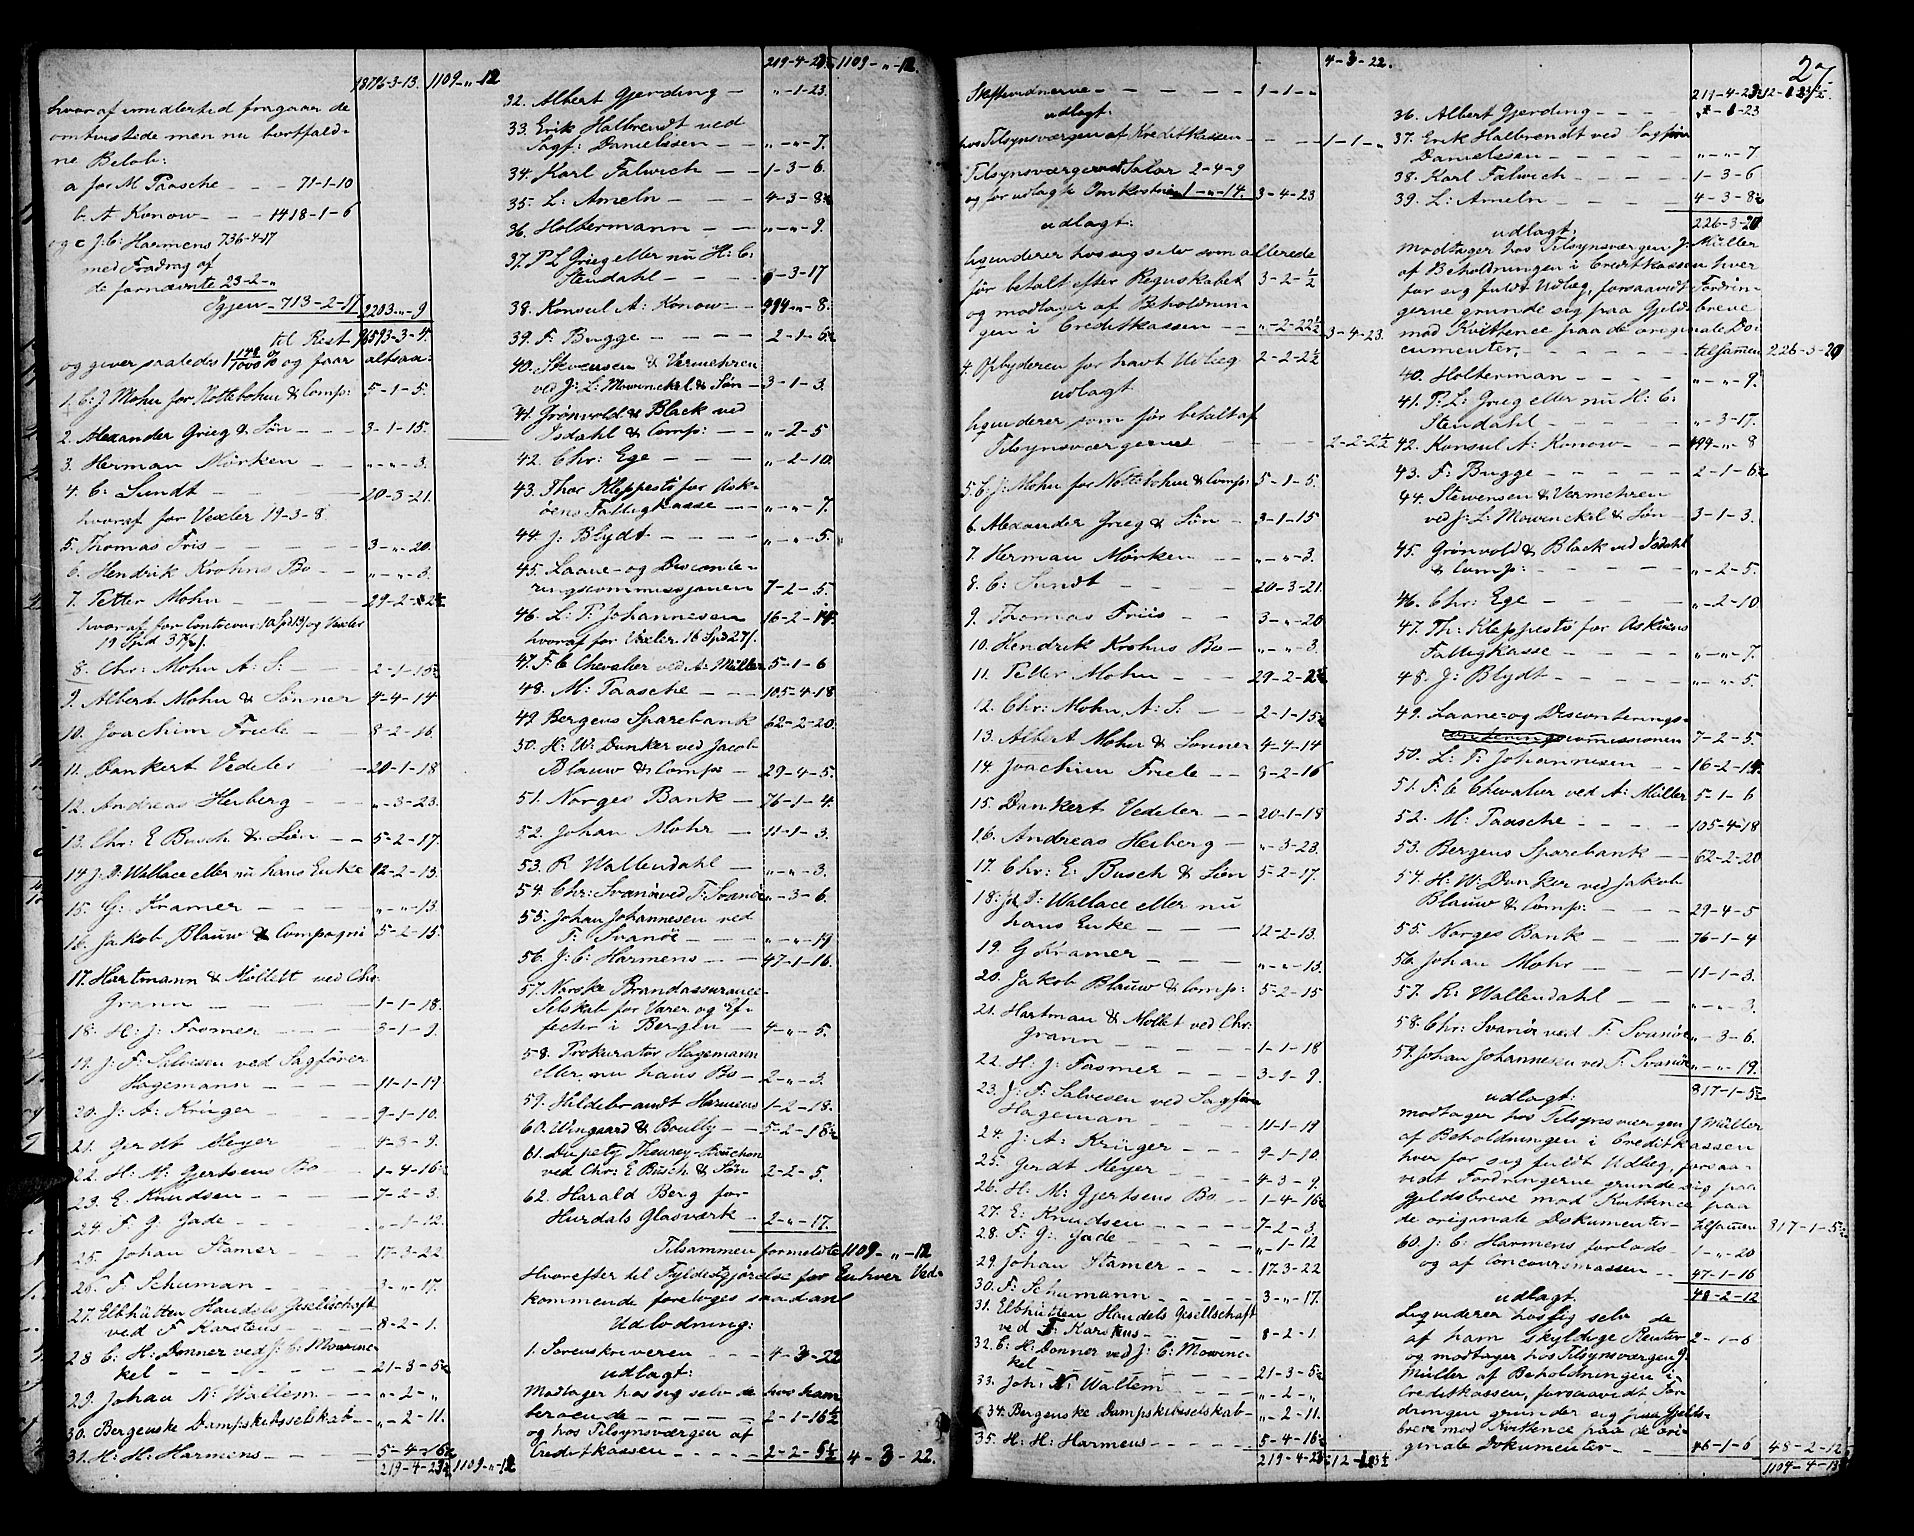 18796-3-13. 1109-„-12
hvoraf imidlertid fragaar de
omtvistede men nu bortfald-
ne Beløb:
a for M Paasche - - - 71-1-10
b. A Konow - - - 1418-1-6
og c J: C: Harmens 736-4-17
med Fradrag af
de fornævnte 23-2-„
Igjen - 713-2-17 2203-„-9
til Rest 16593-3-4.
og giver saaledes og faar altsaa:
1. C: J Mohn for Nottebohm & Comp: 5-1-5.
2. Alexander Grieg & Søn - - - 3-1-15.
3. Herman Mørken - - „-„-3.
4. C: Sundt - - - - 20-3-21.
hvoraf for Vexler 19-3-8.
5. Thomas Friis - - - - 3-„-20.
6. Hendrik Krohns Bo - - „-„-3.
7. Petter Mohn - - - - 29-2-2½
hvoraf for Contocour: 10 Spd 13/ og Vexler
19 Spd 37½/.
8. Chr: Mohn A: S: - - - 2-1-15½
9. Albert Mohn & Sønner 4-4-14
10. Joachim Friele - - - 8-2-16.
11. Dankert Vedeler - 20-1-18
12. Andreas Heiberg - - - „-3-23.
13. Chr: E Busch & Søn - - 5-2-17.
14 J: D: Wallace eller nu hans Enke 12-2-13.
15. G: Kramer - - - - „-„-13
16. Jakob Blauw & Compagni 5-2-15.
17. Hartmann & Mollett ved Chr:
Grann - - - - 1-1-18.
18. H: J: Fasmer - - - 3-1-9.
19. J: F: Salvesen ved Sagfører
Hagemann - - - - 11-1-19
20. J: A: Krüger - - - 9-1-10.
21. Gerdt Meyer - - - 4-3-9.
22. H: M: Gjertsens Bo - 1-4-16½
23. E. Knudsen - - - - 7-2-3.
24. F: G: Gade - - - - „-1-12.
25. Johan Stamer - - - 17-3-22
26. F. Schuman - - - 3-„-17.
27. Elbhütten Handels Gesellschaft
ved F Karstens - - - 8-2-1.
28 C: H: Donner ved J: C: Mowinc-
kel - - - - 21-3-5½
29. Johan N: Wallem - - „-2-„
30. Bergenske Dampskibsselskab - „-2-11.
31. H: H: Harmens - - - 5-4-16½
219-4-23½ 1109-„-12
219-4-23½ 1109-„-12.
32. Albert Gjerding - „-1-23.
33. Erik Halbrendt ved
Sagf: Danielssen - - „-„-7.
34. Karl Falwich - - 1-3-6.
35. L: Ameln - - - 4-3-8½
36. Holtermann - - - „-„-9.
37. P L Grieg eller nu H: C:
Stendahl - - - „-3-17
38. Konsul A: Konow - 494-„-8.
39. F: Bugge - - - 2-1-6½
40. Stevensen & Vermehren
ved J: L: Mowinckel & Søn - 3-1-3.
41. Grønvold & Black ved
Isdahl & Comp: - - „-2-5
42. Chr: Ege - - - „-2-10.
43. Thor Kleppestø for Ask-
øens Fattigkasse - - „-„-7.
44. J: Blydt - - - „-„-5.
45. Laane- og Disconte-
ringscommissjonen 7-2-5.
46. L: P Johannesen 16-2-14.
hvoraf for Vexler 16 Spd 27/.
47. F C Chevalier ved A: Müller 5-1-6
48. M: Paasche - - - 105-4-18
49. Bergens Sparebank 62-2-20.
50. H: W: Dunker ved Jacob
Blauw & Comp: - 29-4-5.
51. Norges Bank - - 76-1-4.
52. Johan Mohr - - 11-1-3.
53. R Wallendahl - - „-„-3.
54. Chr: Svanøe ved F: Svanøe „-3-6.
55. Johan Johannesen ved
F: Svanøe - - - „-„-19
56. J: C: Harmens - - 47-1-16.
57. Norske Brandassurance
Selskab for Varer og Ef-
fecter i Bergen - - 4-„-5.
58. Prokurator Hagemann
eller nu hans Bo - 2-„-3.
59. Hildebrandt Harmens 1-2-18.
60. Wingaard & Boully - 5-2-18½
61. Dupety Theurey-Bouchon
ved Chr: E Busch & Søn 2-2-5.
62. Harald Berg for
Hurdals Glasværk - 2-„-17.
Tilsammen formeldte 1109-„-12
Hvorefter til Fyldestgjørelse for Enhver Ved-
kommende foretoges saadan
Udlodning:
1. Sorenskriveren - - 4-3-22
udlagt:
Modtager hos sig selv de hos ham
beroende - - - - 2-1-16½
og hos Tilsynsværgen af
Creditkassen - - - 2-2-5½ 4-3-22.
27.
4-3-22.
Skiftevidnerne - - - - - 1-1-„
udlagt:
hos Tilsynsværgen af Kreditkassen - - - 1-1-„
Tilsynsværgernes Salar 2-4-9
og for udlagte Omkostnin: 1-„-14. 3-4-23
udlagt:
liqviderer hos sig selv som allerede
før betalt efter Regnskabet 3-2-½
og modtager af Beholdnin-
gen i Creditkassen - - „-2-22½ 3-4-23.
4. Opbyderen for havt Udlæg 2-2-2½
udlagt
liqviderer som før betalt af
Tilsynsværgerne - - - 2-2-2½
5. C: J: Mohn for Nottebohm & Comp: 5-1-5.
6. Alexander Grieg & Søn - 3-1-15
7. Herman Mørken - - „-„-3.
8. C: Sundt - - - - 20-3-21.
9. Thomas Friis - - - 3-„-20
10. Hendrik Krohns Bo - „-„-3.
11. Petter Mohn - - - 29-2-2½
12. Chr: Mohn. A: S: - - 2-1-15½
13. Albert Mohn & Sønner 4-4-14
14. Joachim Friele - - 8-2-16
15. Dankert Vedeler - - 20-1-18
16. Andreas Heiberg - - „-3-23.
17. Chr: E: Busch & Søn 5-2-17.
18. J: D: Wallace eller nu
hans Enke - - - 12-2-13.
19. G Kramer - - - „-„-13.
20. Jakob Blauw & Comp: 5-2-15
21. Hartman & Mollet ved Chr:
Grann - - - - 1-1-18
22. H: J: Fasmer - - - 3-1-9.
23. J: F: Salvesen ved Sagfør
Hageman - - - 11-1-19
24. J: A: Krüger - - - 9-1-10
25. Gerdt Meyer - - - 4-3-9.
26. H: M: Gjertsens Bo - 1-4-16½
27. E: Knudsen - - - 7-2-3.
28. F: G: Gade - - - „-1-12
29. Johan Stamer - - 17.3-22
30. F: Schumann - - - 3-„-17.
31. Elbhütten Handels Gesellschaft
ved F: Karstens - - - 8-2-1.
32. C: H: Donner ved J: C: Mowinc-
kel - - - - 21-3-5½
33. Joh: N: Wallem - - „-2-„
34. Bergenske Dampskibsselskab - „-2-11.
35. H: H: Harmens - - - 5-4-16½
219-4-23½ 12-1-23½
219-4-23½ 12-1-23½.
36. Albert Gjerding - - - „-1-23
37. Erik Halbrendt ved Sagfører
Danielssen - - - - „-„-7
38. Karl Falwich - - - 1-3-6
39. L: Ameln - - - - 4-3-8½
226-3-20
udlagt:
modtager hos Tilsynsværgen J: Müller
af Beholdningen i Creditkassen hver
for sig fuldt Udlæg, forsaavidt Fordrin-
gerne grunde sig paa Gjeldsbreve
mod Kvittence paa de originale Do-
cumenter, - - - - - tilsammen 226-3-20
40. Holterman - - - - „-„-9.
41. P: L: Grieg eller nu H: C:
Stendahl - - - - „-3-17.
42. Konsul A: Konow - - 494-„-8
43. F: Bugge - - - - 2-1-6½
44. Stevensen & Vermehren
ved J: L: Mowinckel & Søn - 3-1-3.
45. Grønvold & Black ved Isdahl
& Comp: - - - - „-2-5.
46. Chr: Ege - - - - „-2-10
47. Th: Kleppestø for Askøens
Fattigkasse - - - - „-„-7.
48. J: Blydt - - - - „-„-5.
49. Laane- og Disconterings-
commissionen 7-2-5.
50. L: P: Johannesen - - 16-2-14.
51. F: C Chevalier ved A: Müller 5-1-6
52. M: Paasche - - - - 105-4-18
53. Bergens Sparebank - - 62-2-20
54. H: W: Dunker ved Jakob
Blauw & Comp: - - - 29-4-5
55. Norges Bank - - - 76-1-4
56. Johan Mohr - - - 11-1-3.
57. R: Wallendahl - - - „-„-3.
58. Chr: Svanøe ved F: Svanøe „-3-6.
59. Johan Johannesen ved F: Svanøe „-„-19.
817-1-5½
udlagt:
modtager hos Tilsynsværgen J Müller
af Beholdningen i Creditkassen
hver for sig fuldt Udlæg, forsaa-
vidt Fordringerne grunde sig paa
Gjeldsbreve mod Kvittence paa
de originale Dokumenter - tilsammen 817-1-5½
60. J: C: Harmens forlods - 1-„-20
og af Concoursmassen - - 47-1-16
48-2-12
udlagt
Liqviderer hos sig selv de
af ham skyldige Renter 2-1-6
og modtager hos Tilsynsværgen J.
Müller af Beholdningen i
Creditkassen, forsaavidt For-
dringen grunder sig paa Gjelds-
breve mod Kvittence paa de ori-
ginale Dokumenter - - - 46-1-6 48-2-12
1104-4-18